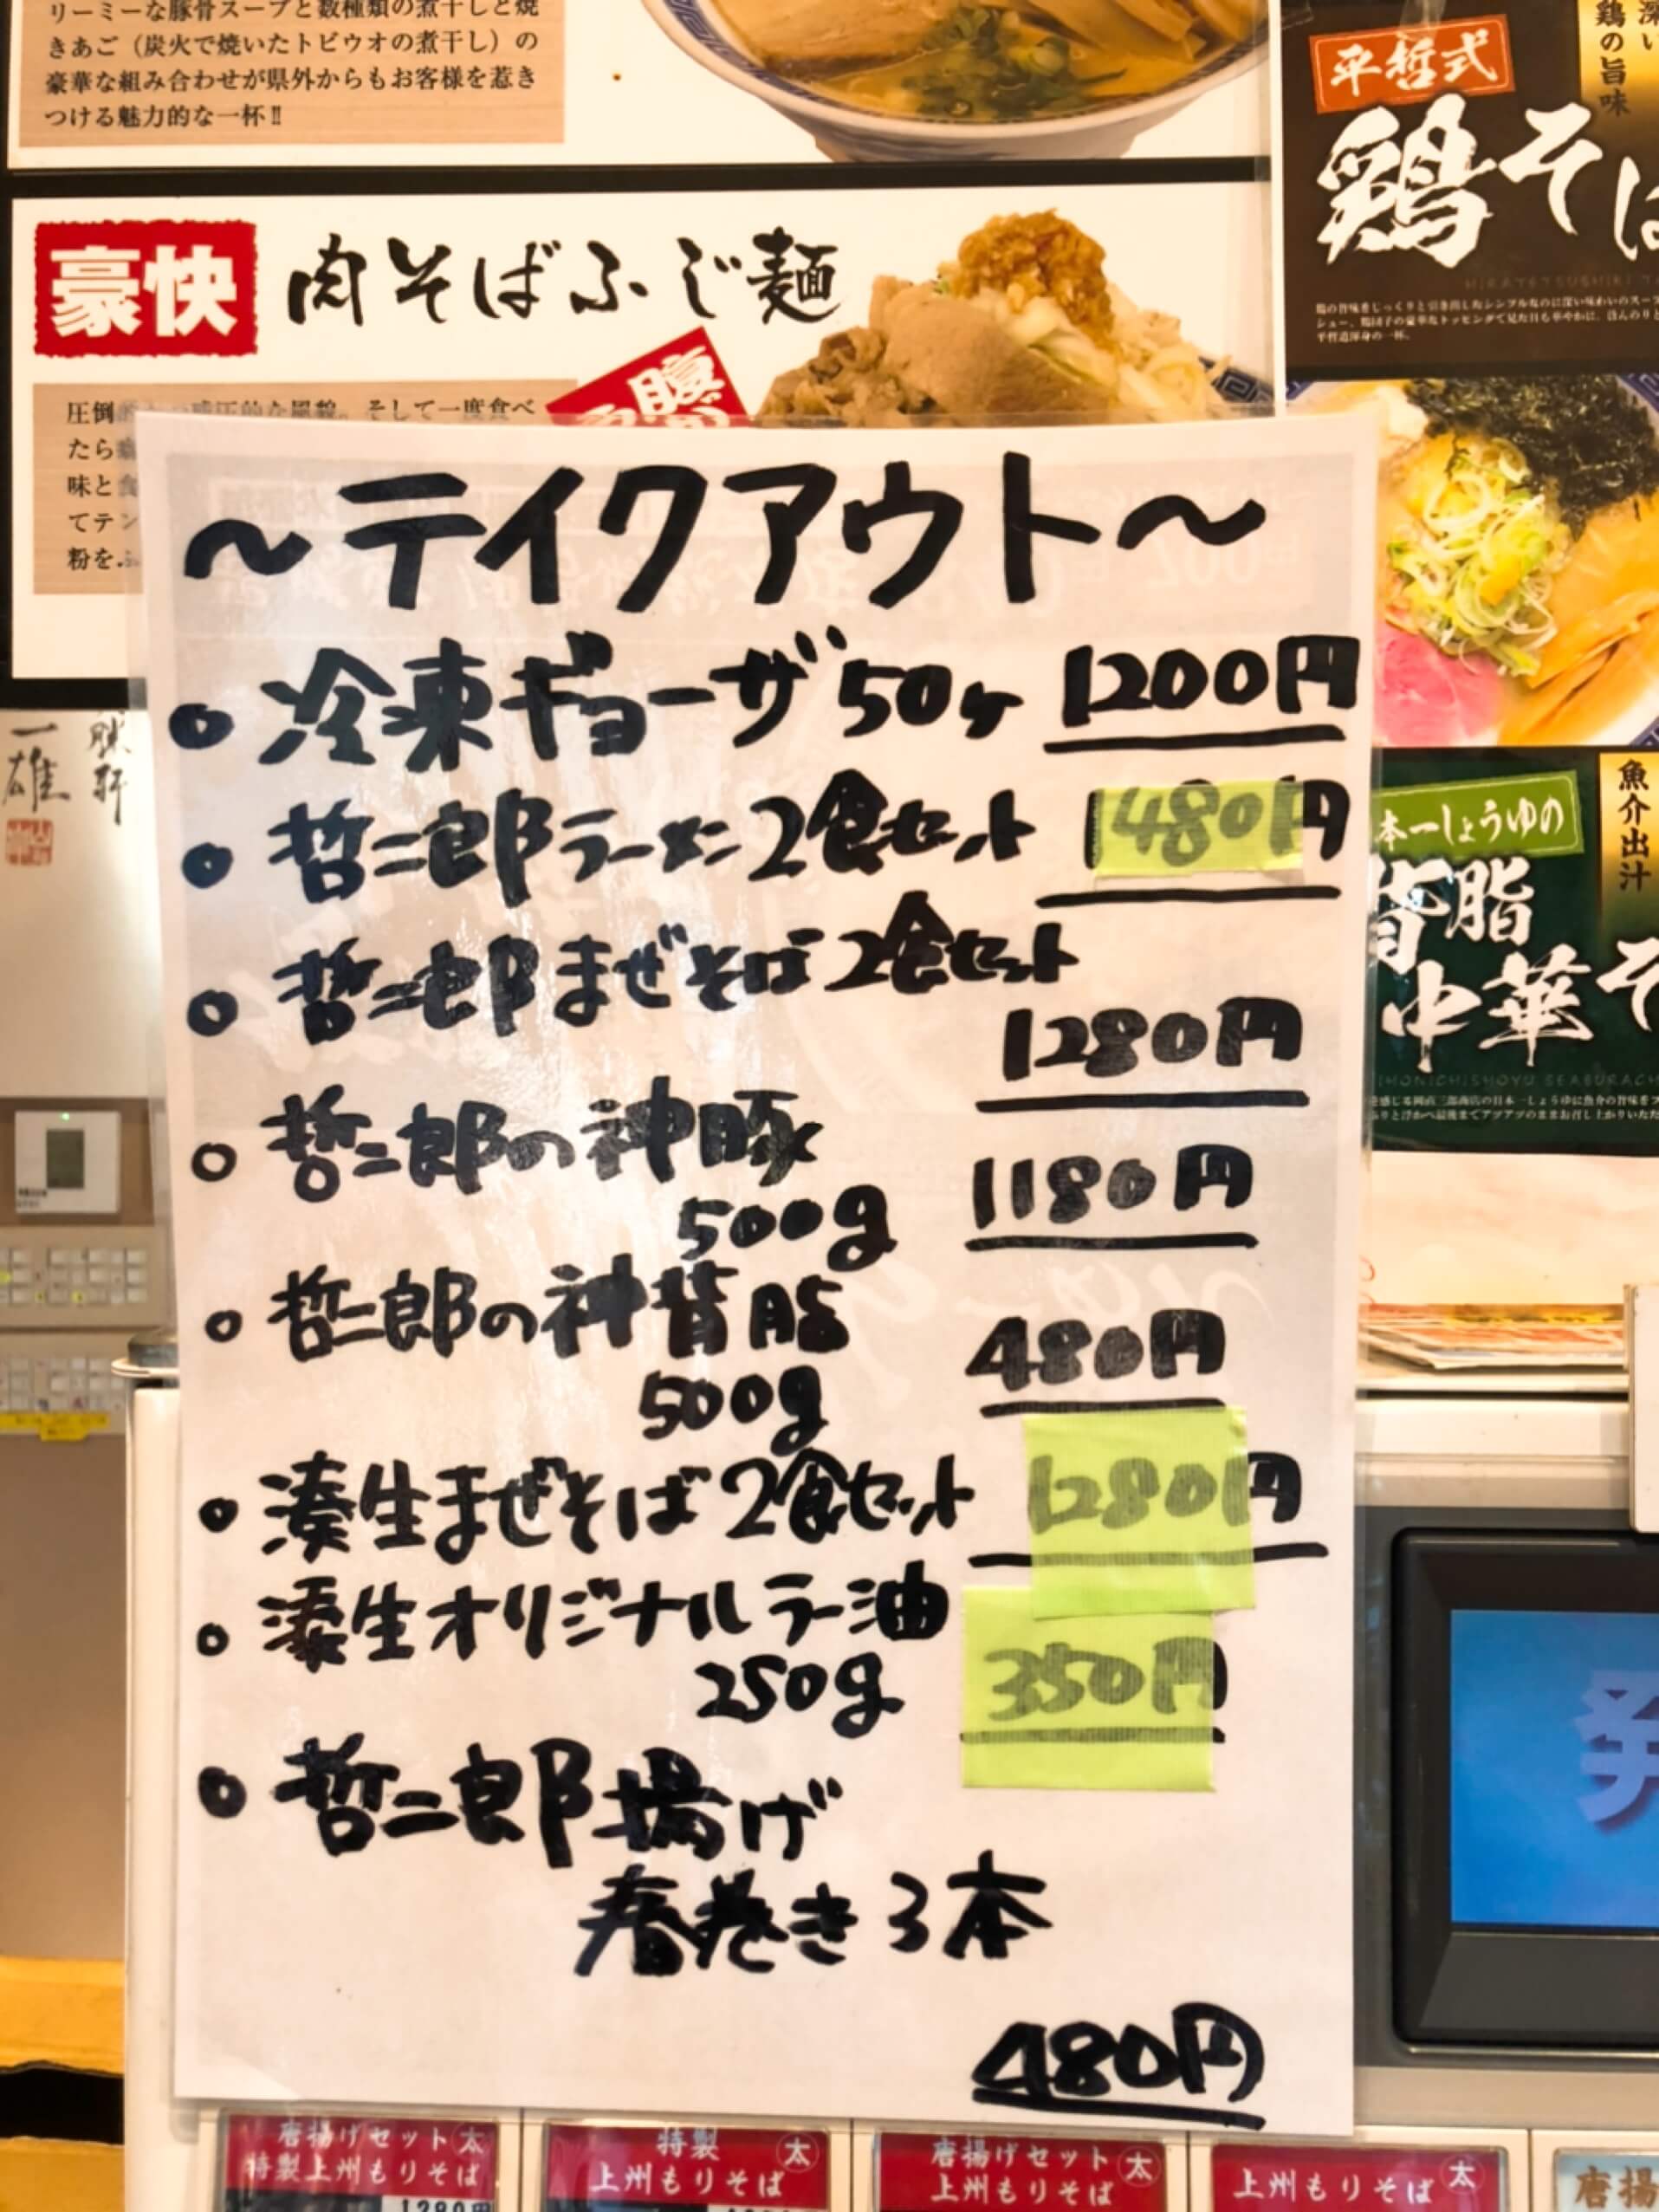 リーミーな豚骨スープと数種類の煮干しと焼
きあご（炭火で焼いたトビウオの煮干し）の
豪華な組み合わせが県外からもお客様を惹き
つける魅力的な一杯!!
深い
鶏の旨味
平哲式
鶏そば
豪快
肉そばふじ麺
圧倒
そして一度食べ
たら
味と
てテン
粉を
～テイクアウト～
○ 冷凍ギョーザ50ヶ 1200円
○ 哲二郎ラーメン2食セット 1480円
○ 哲二郎まぜそば2食セット
1280円
○ 哲二郎の神豚
500g 1180円
○ 哲二郎の神背脂 480円
500g
○ 湊生まぜそば2食セット 1280円
○ 湊生オリジナルラー油
250g 350円
○ 哲二郎揚げ
春巻き3本
480円
一雄
軒
本一しょうゆの
魚介出汁
背脂
中華そ
発
唐揚げセット 太
特製上州もりそば
1280円
特製 太
上州もりそば
唐揚げセット 太
上州もりそば
上州もりそば 太
唐揚